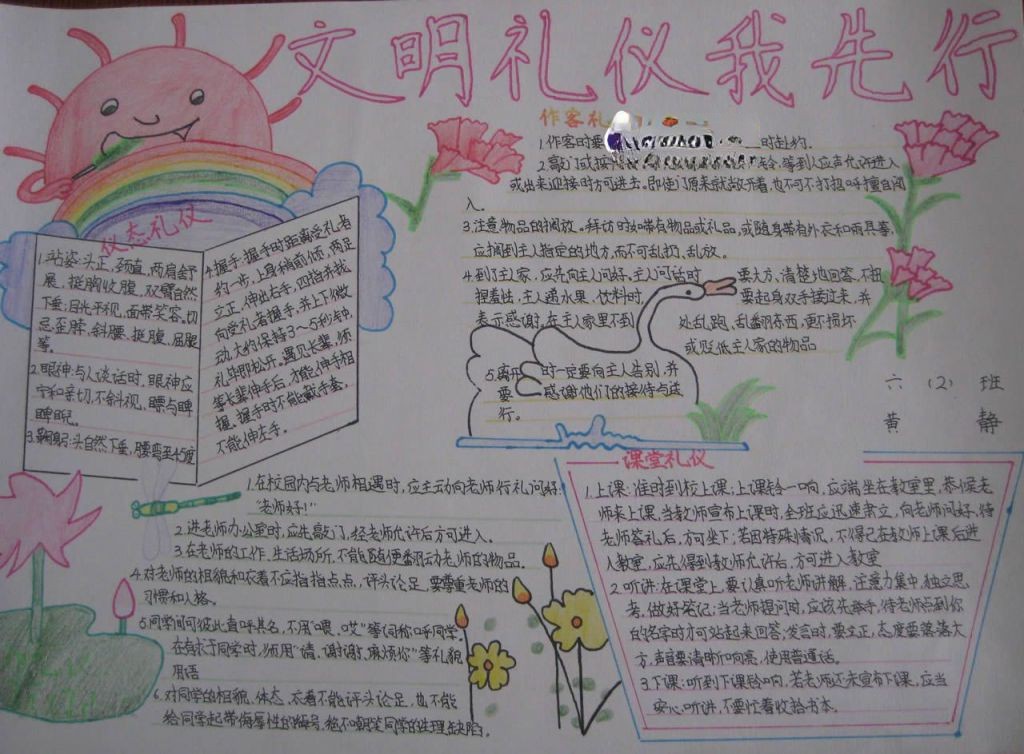 文明礼仪我先行
仪态礼仪
1.站姿:头正,颈直,两肩舒
展,挺胸收腹,双臂自然
下垂,目光平视,面带笑容,切
忌歪脖,斜腰,挺腹,屈腿
等。
2.眼神:与人谈话时,眼神应
宁和亲切,不斜视,瞟与睥
睥睨。
3.鞠躬:头自然下垂,腰弯至45度
4.握手:握手时距离受礼者
约一步,上身稍前倾,两足
立正,伸出右手,四指并拢
向受礼者握手,并上下微
动,大约保持3～5秒钟,
礼毕即松开。遇见长辈,须
等长辈伸手后,才能伸手相
握。握手时不能戴手套,
不能伸左手。
作客礼
1.作客时要 时赴约.
2.敲门或按 铃,等到人应声允许进入
或出来迎接时方可进去.即使门原来就敞开着,也不可不打招呼擅自闯
入。
3.注意物品的搁放。拜访时如带有物品或礼品,或随身带有外衣和雨具等,
应搁到主人指定的地方,而不可乱扔、乱放。
4.到了主家,应先向主人问好.主人问话时 要大方、清楚地回答,不扭
捏羞怯,主人递水果、饮料时, 要起身双手接过来,并
表示感谢,在主人家里不到 处乱跑,乱翻东西,更不损坏
或贬低主人家的物品
5.离开 时一定要向主人告别,并
要 感谢他们的接待与送
行。
六 (2) 班
黄 静
1.在校园内与老师相遇时,应主动向老师行礼问好:
“老师好!”
2.进老师办公室时,应先敲门,经老师允许后方可进入。
3.在老师的工作、生活场所,不能随便翻动老师的物品.
4.对老师的相貌和衣着不应指指点点,评头论足,要尊重老师的
习惯和人格。
5.同学间可彼此直呼其名,不用“喂,哎”等词称呼同学.
在有求于同学时,须用“请,谢谢,麻烦你”等礼貌
用语
6.对同学的相貌、体态、衣着不能评头论足,也不能
给同学起带侮辱性的绰号,绝不嘲笑同学的生理缺陷。
课堂礼仪
1.上课:准时到校上课;上课铃一响,应端坐在教室里,恭候老
师来上课,当教师宣布上课时,全班应迅速肃立,向老师问好,待
老师答礼后,方可坐下;若因特殊情况,不得已在教师上课后进
入教室,应先得到教师允许后方可进入教室
2.听讲:在课堂上,要认真听老师讲解,注意力集中,独立思
考,做好笔记;当老师提问时,应该先举手,待老师点到你
的名字时才可站起来回答;发言时,要立正,态度要落落大
方,声音要清晰响亮,使用普通话。
3.下课:听到下课铃响,若老师还未宣布下课,应当
安心听讲,不要忙着收拾书本.